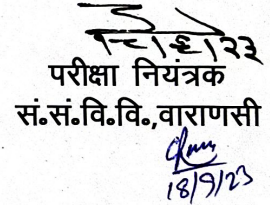 परीक्षा नियंत्रक
सं॰सं॰वि॰वि॰,वाराणसी
18/9/23